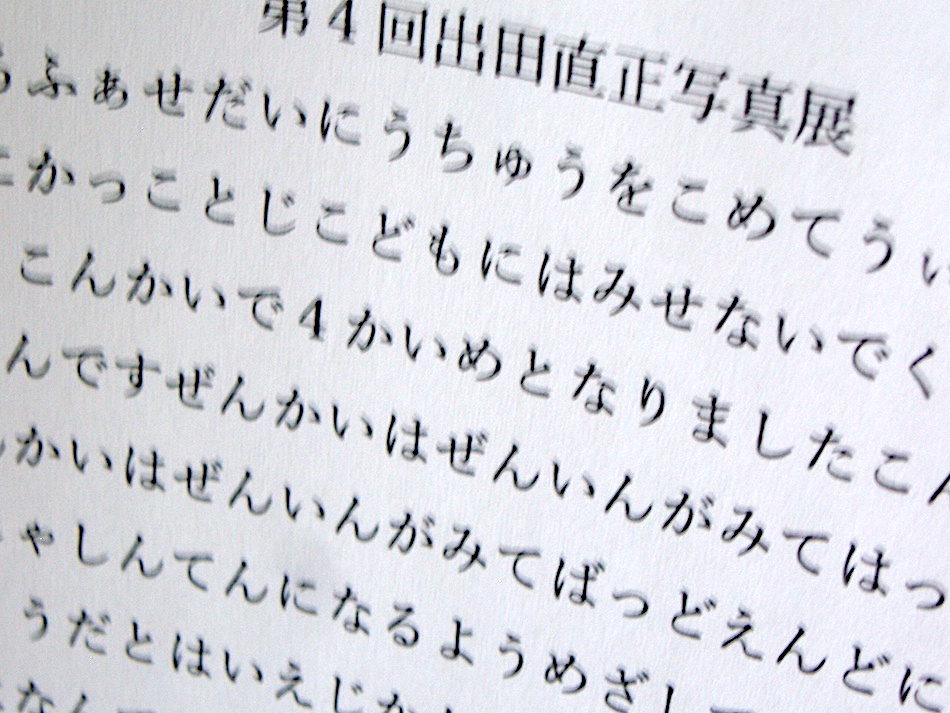 第4回出田直正写真展
うふぁせだいにうちゅうをこめてうい
にかっことじこどもにはみせないでく
こんかいで4かいめとなりましたこん
んですぜんかいはぜんいんがみてはっ
かいはぜんいんがみてばっどえんどに
ゃしんてんになるようめざし
うだとはいえじか
なん